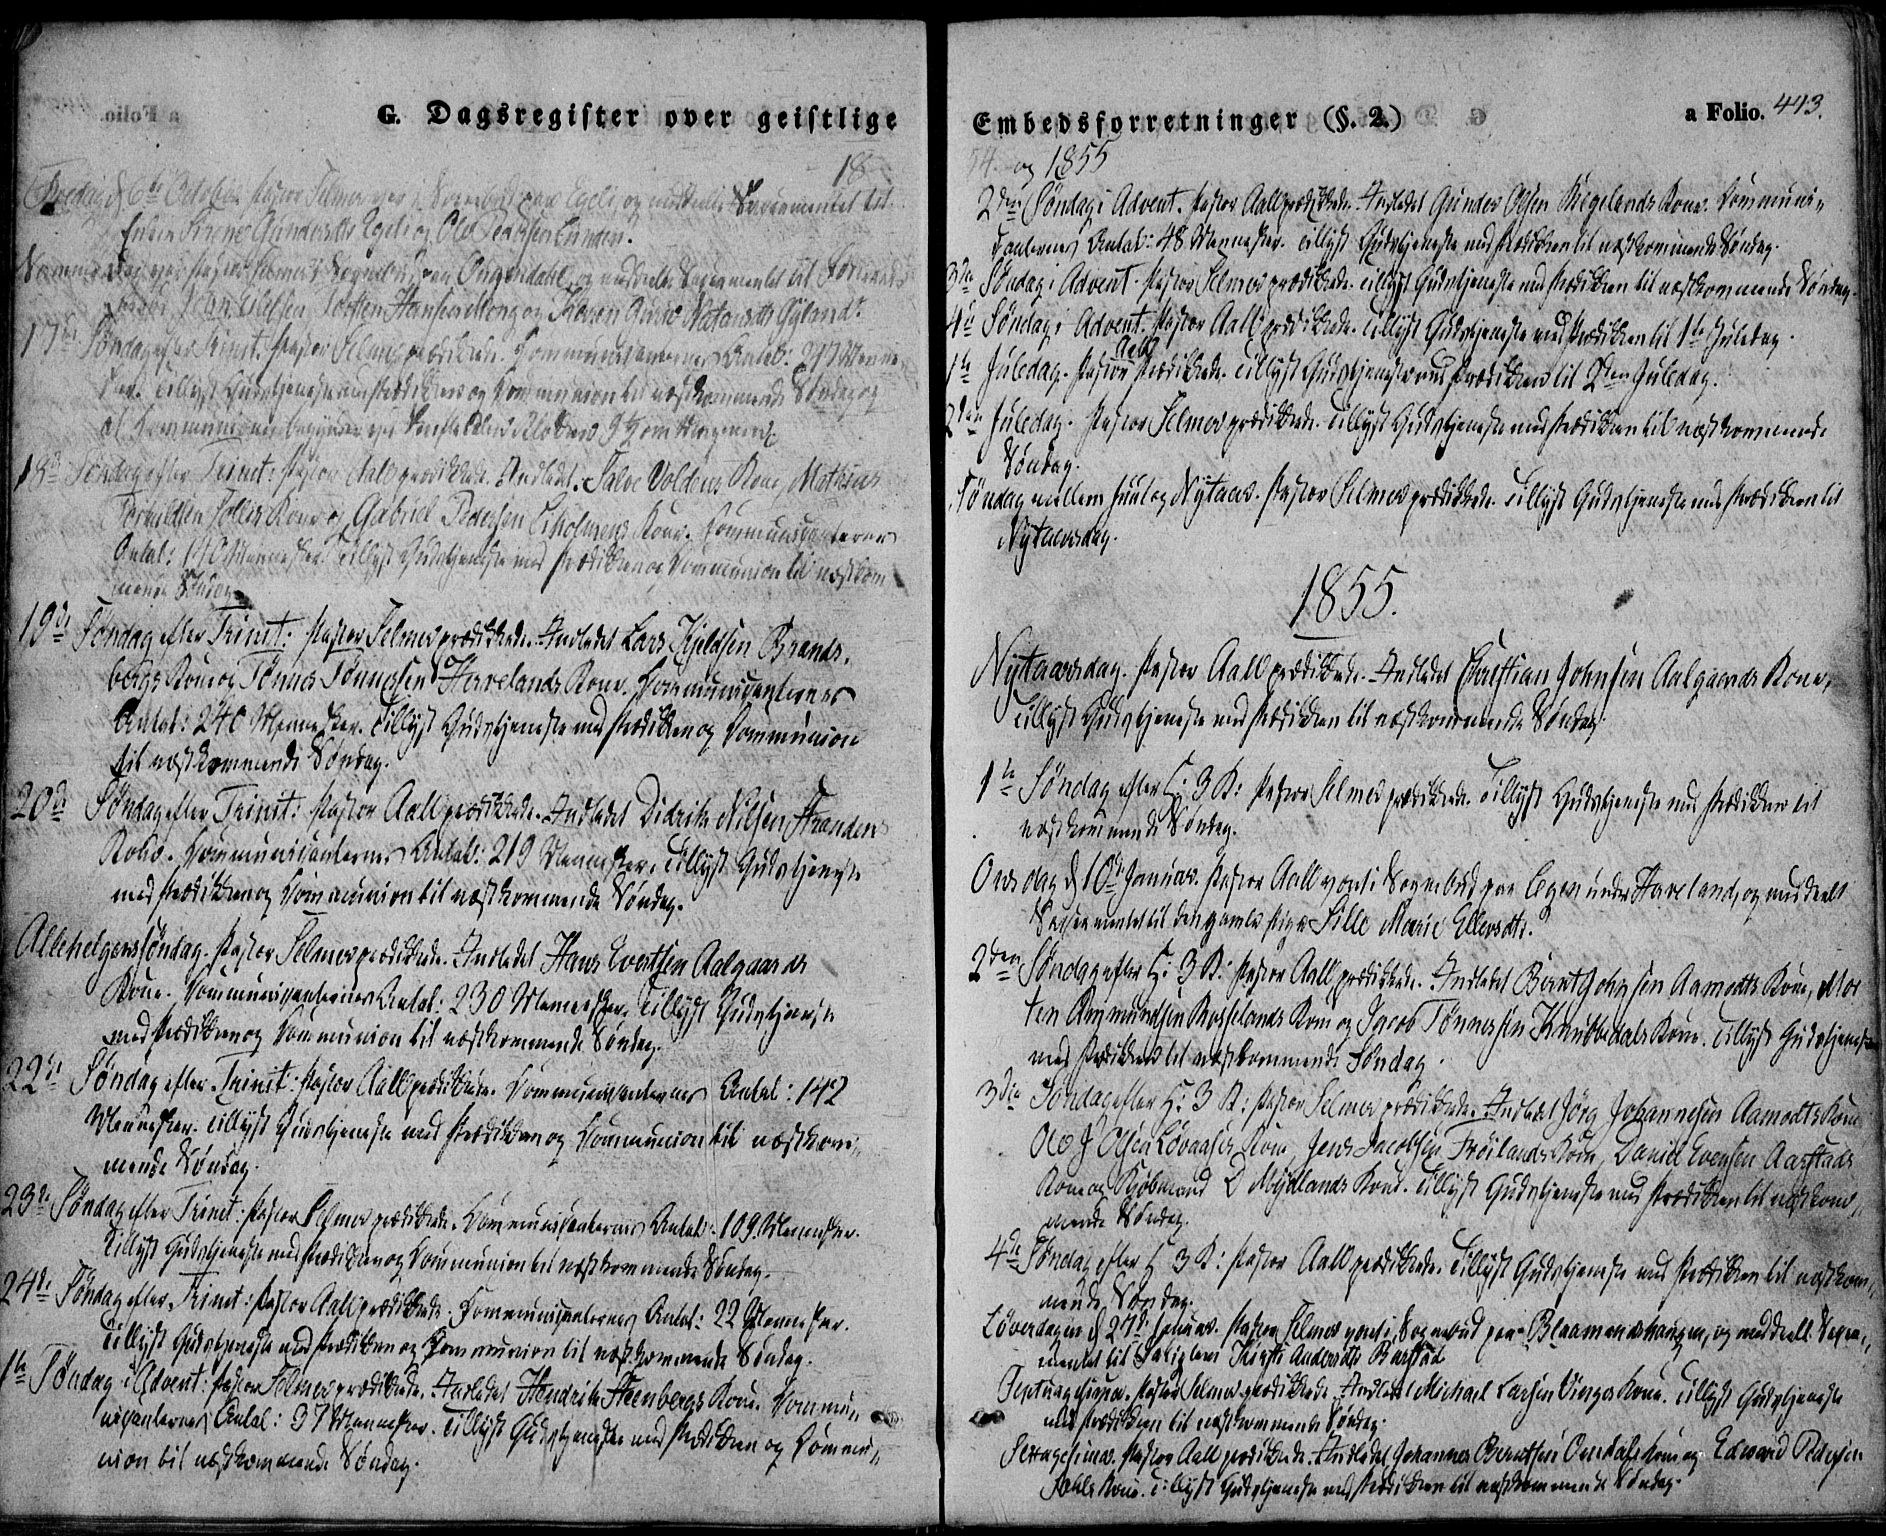 G. Dagsregister over geistlige
18
Fredag d. 6te October Pastor Selmer var i Sognebud paa Egeli, og meddeelte Sacramentet til
Enken Sirene Gundersdtr Egeli og Ole Pedersen Lunden.
Pastor Selmer i Sognebud paa og meddeelte Sacramentet til
Hansen og Karen
17de Søndag efter Trinit. Pastor Selmer prædikede. Communicanternes Antal: 247 Menne-
sker. Tillyst Gudstjeneste med Prædiken og Communion til næstkommende Søndag og
at Communionen begynder Klokken 9
18de Søndag efter Trinit: Pastor Aall prædikede. Indledet Salve Voldens Kone, Mathias
Kone og Gabriel Pedersen Kone. Communicanternes
Antal: 140 Mennesker. Tillyst Gudstjeneste med Prædiken og Communion til næstkom-
mende Søndag.
19de Søndag efter Trinit: Pastor Selmer prædikede. Indledet Lars Kjeldsen Brands-
bergs Kone og Tønnes Tønnesen Hævelands Kone. Communicanternes
Antal: 240 Mennesker. Tillyst Gudstjeneste med Prædiken og Communion
til næstkommende Søndag.
20de Søndag efter Trinit: Pastor Aall prædikede. Indledet Didrik Nilsen Strandens
Kone. Communicanternes Antal: 219 Mennesker. Tillyst Gudstjeneste
med Prædiken og Communion til næstkommende Søndag.
Allehelgenssøndag. Pastor Selmer prædikede. Indledet Hans Evertsen Aalgaards
Kone. Communicanternes Antal: 230 Mennesker. Tillyst Gudstjeneste
med Prædiken og Communion til næstkommende Søndag.
22de Søndag efter Trinit: Pastor Aall prædikede. Communicanternes Antal: 142
Mennesker. Tillyst Gudstjeneste med Prædiken og Communion til næstkom-
mende Søndag.
23de Søndag efter Trinit: Pastor Selmer prædikede. Communicanternes Antal: 109 Mennesker.
Tillyst Gudstjeneste med Prædiken og Communion til næstkommende Søndag.
24de Søndag efter Trinit: Pastor Aall prædikede. Communicanternes Antal: 22 Mennesker.
Tillyst Gudstjeneste med Prædiken og Communion til næstkommende Søndag.
1te Søndag i Advent: Pastor Selmer prædikede. Indledet Hendrik Steenbergs Kone. Commu-
nicanternes Antal: 37 Mennesker. Tillyst Gudstjeneste med Prædiken og Commu-
nion til næstkommende Søndag.
Embedsforretninger (§. 2.)
a Folio. 413.
54. og 1855
2den Søndag i Advent. Pastor Aall prædikede. Indledet Gunder Olsen Kegelands Kone. Communi-
canternes Antal: 48 Mennesker. Tillyst Gudstjeneste med Prædiken til næstkommende Søndag.
3die Søndag i Advent. Pastor Selmer prædikede. Tillyst Gudstjeneste med Prædiken til næstkommende Søndag.
4de Søndag i Advent. Pastor Aall prædikede. Tillyst Gudstjeneste med Prædiken til 1te Juledag.
1te Juledag. Pastor Aall prædikede. Tillyst Gudstjeneste med Prædiken til 2den Juledag.
2den Juledag. Pastor Selmer prædikede. Tillyst Gudstjeneste med Prædiken til næstkommende
Søndag.
Søndag mellem Juul og Nytaar. Pastor Selmer prædikede. Tillyst Gudstjeneste med Prædiken til
Nytaarsdag.
1855.
Nytaarsdag. Pastor Aall prædikede. Indledet Christian Johnsen Aalgaards Kone.
Tillyst Gudstjeneste med Prædiken til næstkommende Søndag.
1te Søndag efter H: 3 K: Pastor Selmer prædikede. Tillyst Gudstjeneste med Prædiken til
næstkommende Søndag.
Onsdag d. 10de Januar. Pastor Aall var i Sognebud paa under Haveland, og meddeelt
Sacramentet til den gamle Pige Sille Marie Ellersdtr.
2den Søndag efter H: 3 K: Pastor Aall prædikede. Indledet Bernt Johnsen Aamodts Kone, Mor-
ten Aamundsen Rosselands Kone og Jacob Tønnessen Knibbedals Kone. Tillyst Gudstjeneste
med Prædiken til næstkommende Søndag.
3die Søndag efter H: 3 K: Pastor Selmer prædikede. Indledet Jørg Johannesen Aamodts Kone
Ole J Olsen Løvaases Kone, Jens Jacobsen Frøilands Kone, Daniel Evensen Aarstads
Kone og Kjøbmand D Mydlands Kone. Tillyst Gudstjeneste med Prædiken til næstkom-
mende Søndag.
4de Søndag efter H 3 K: Pastor Aall prædikede. Tillyst Gudstjeneste med Prædiken til næstkom-
mende Søndag.
Løverdagen d. 27de Januar. Pastor Selmer var i Sognebud paa Blaamanshaugen, og meddeelt Sacra-
mentet til Kirsti Andersdtr Barstad
Septuagesima. Pastor Selmer prædikede. Indledet Michael Larsen Kone. Tillyst Gudstjeneste
med Prædiken til næstkommende Søndag.
Sexagesima. Pastor Aall prædikede. Indledet Johannes Berntsen Kone og Edvard Pedersen
Kone. Tillyst Gudstjeneste med Prædiken til næstkommende Søndag.